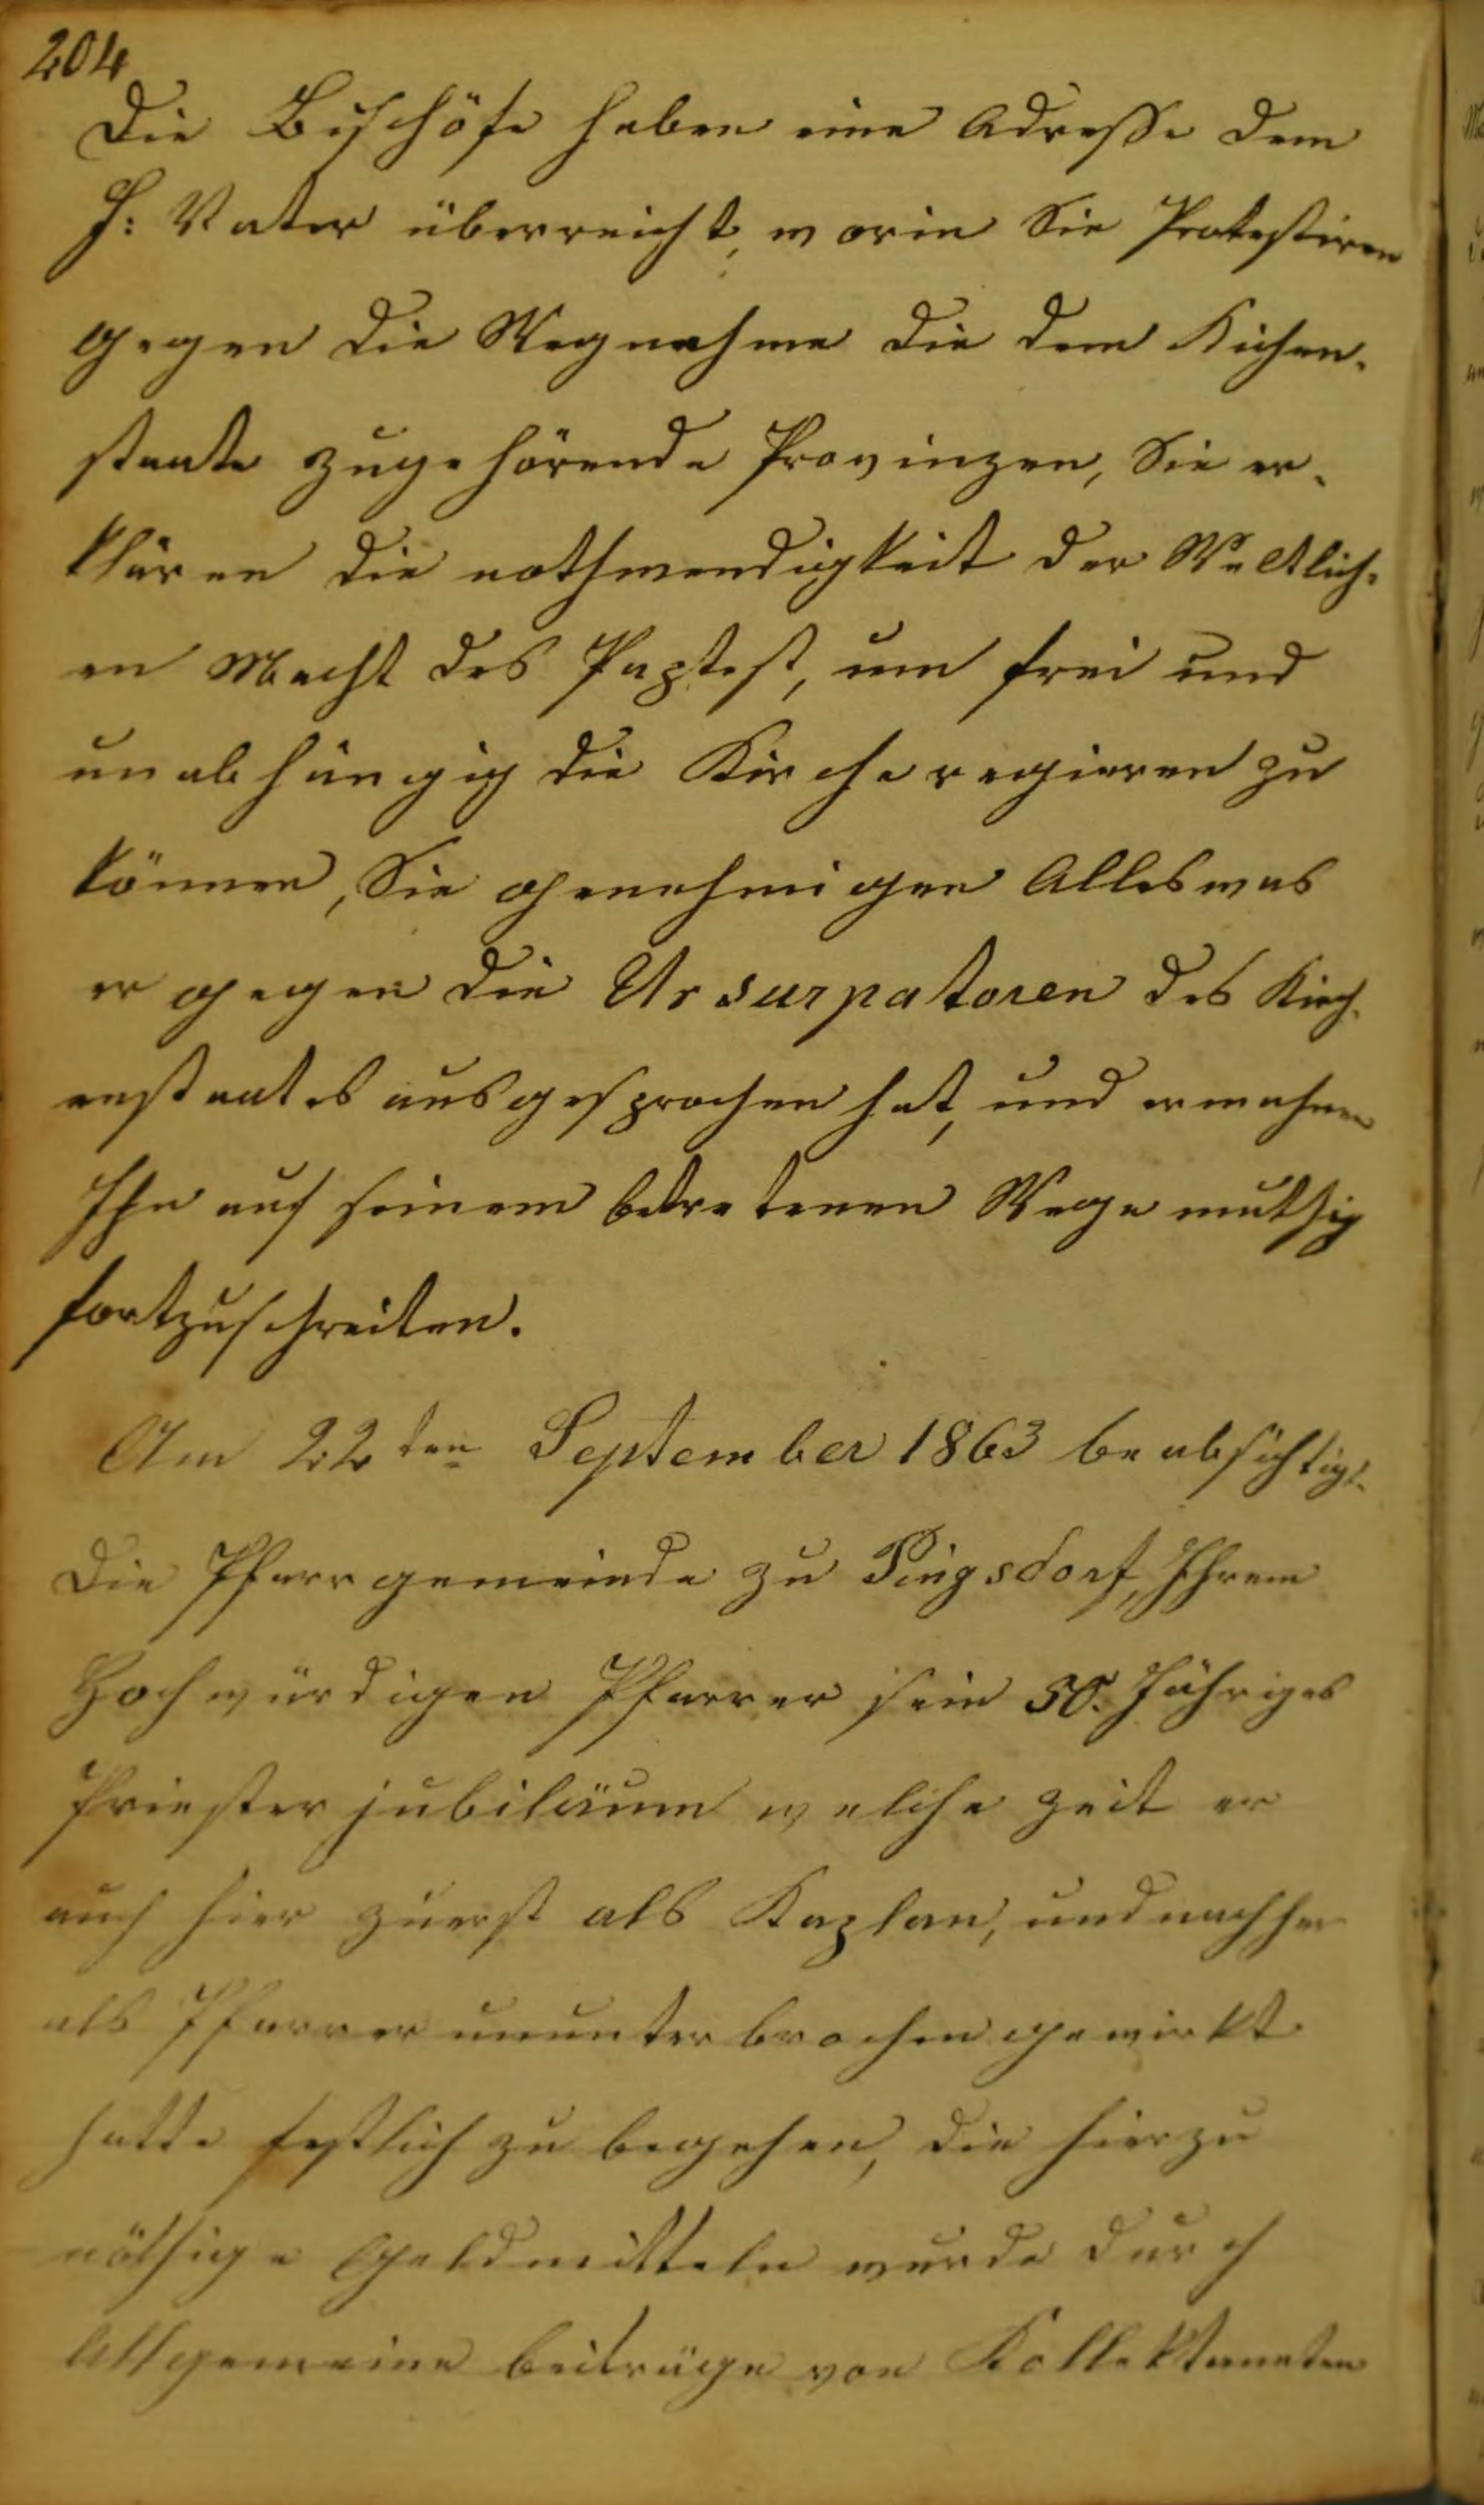 204
Die Bischöfe haben eine Adresse dem
H: Vater überreicht, worin Sie Protestiren
gegen die Wegnahme die dem Kichen-
staate zugehörende Provinzen, Sie er-
klären die nothwendigkeit der Weltlich-
en Macht des Paptest, um frei und
unabhängig die Kirche regieren zu
können, Sie genehmigen Alles was
er gegen die Ursurpatoren des Kirch-
enstaates ausgesprochen hat, und ermahnen
Ihn auf seinem betretenen Wege muthig
fortzuschreiten.
Am 22ten September 1863 beabsichtigt
die Pfarrgemeinde zu Pingsdorf, Ihrem
Hochwürdigen Pfarrer sein 50. Jähriges
Priesterjubiläum welche zeit er
auch hier zuerst als Kaplan, und nachher
als Pfarrer ununterbrochen gewirkt
hatte festlich zu begehen, die hierzu
nöthige Geldmitteln wurde durch
Allgemeine beiträge von Kollektanten